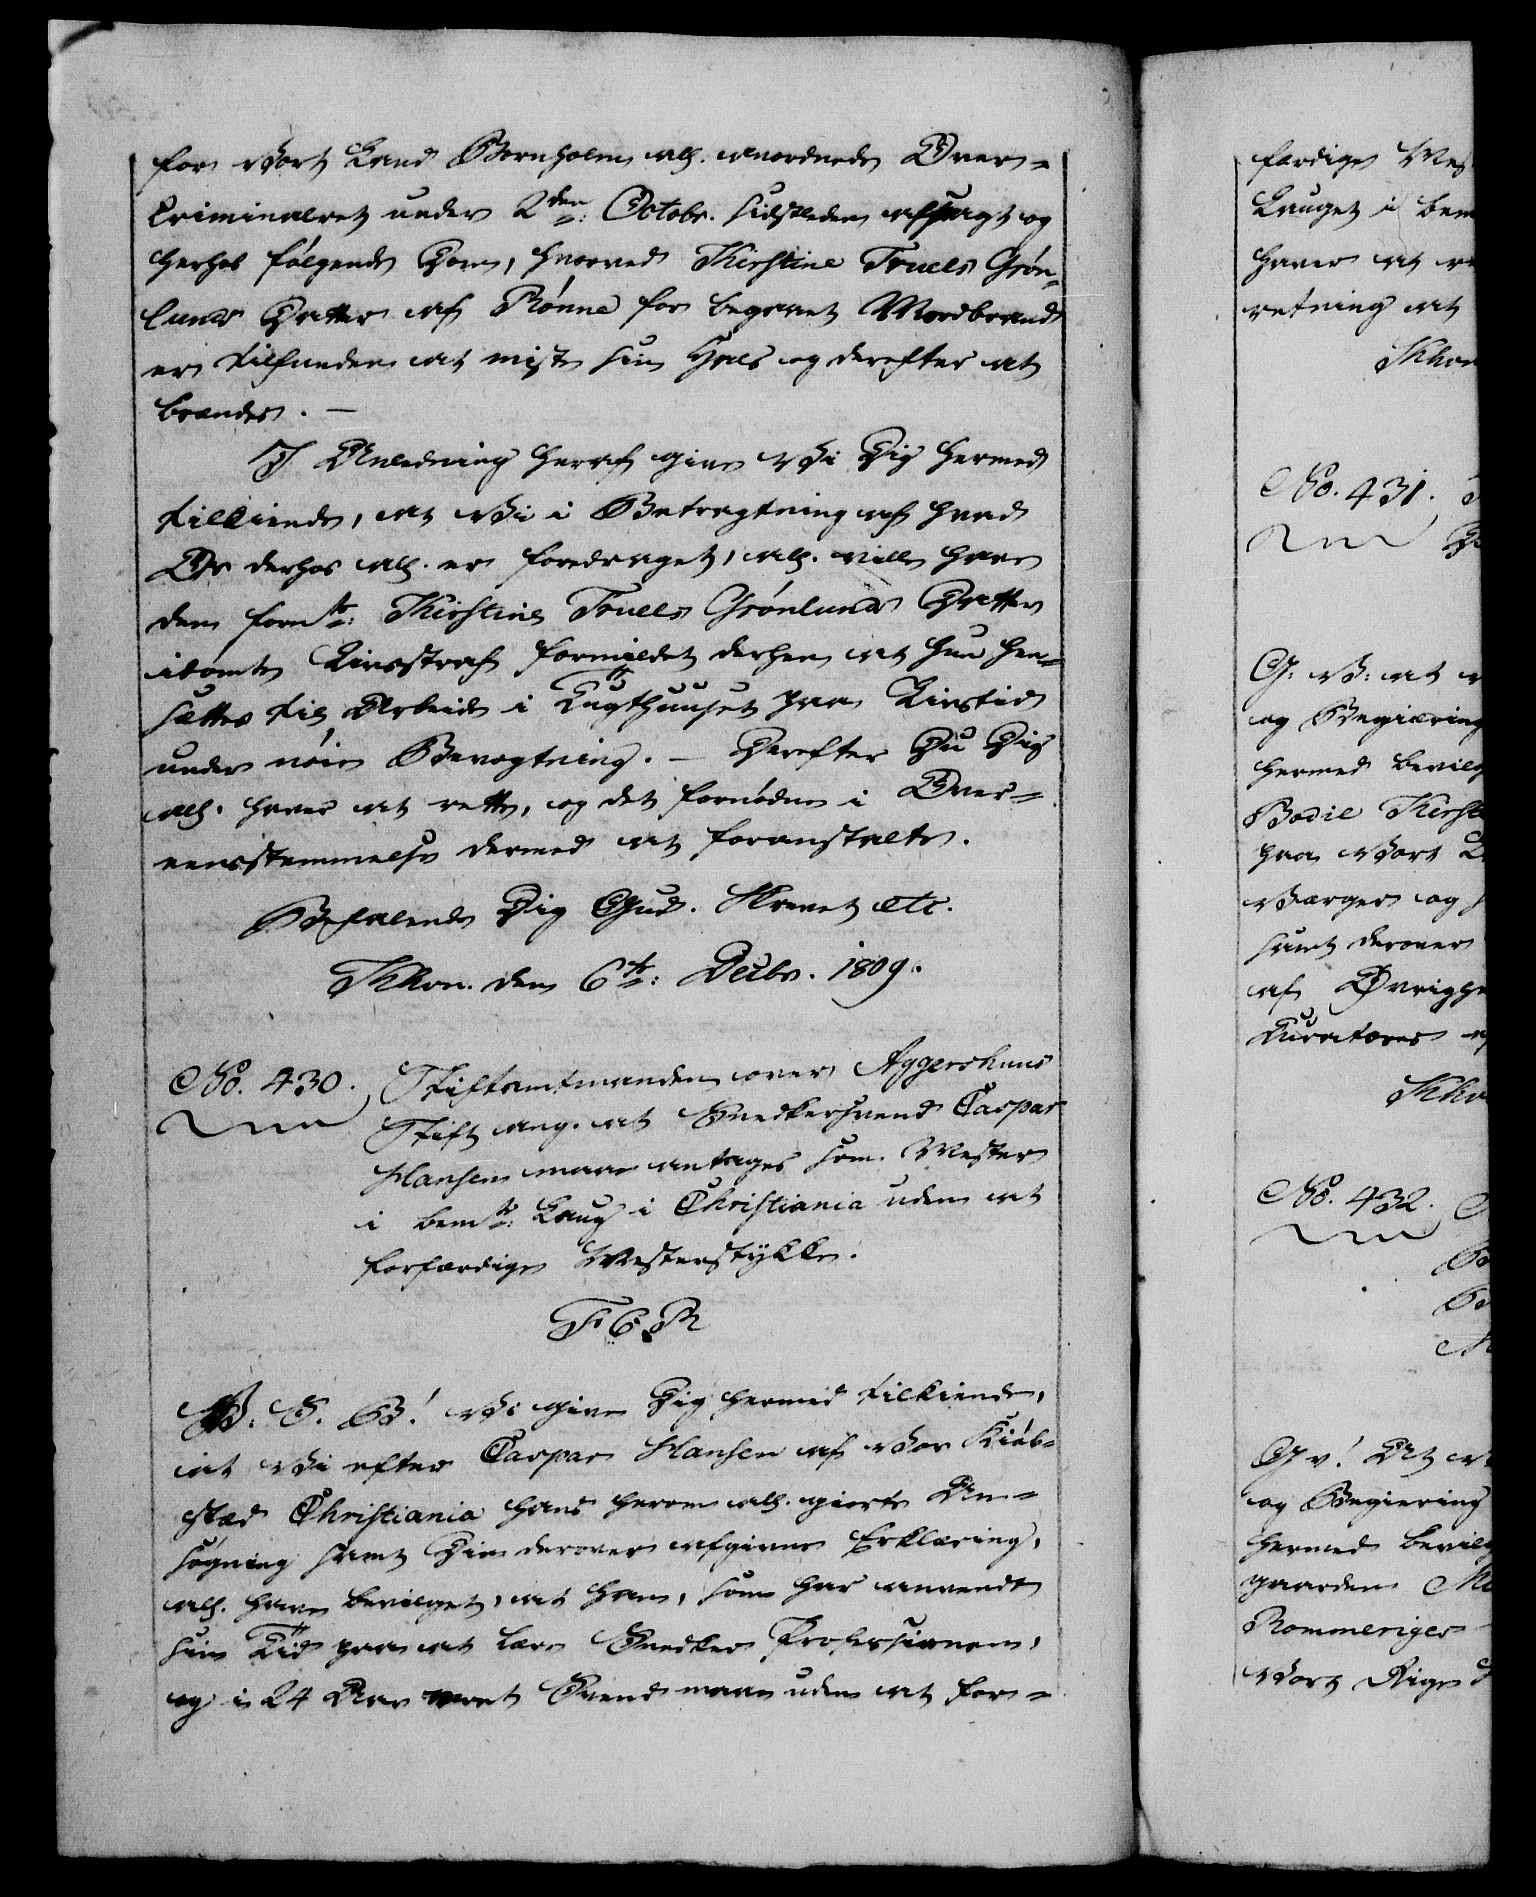 for Vort Land Bornholm all. anordnede Over-
Criminalret under 2den Octobr. sidstleden afsagt og
herhos følgende Dom, hvorved Kirstine Truels Grøn-
lunds Datter af Rønne for begaaet Mordbrand
er tilfunden at miste sin Hals og derefter at
brændes. —
I Anledning heraf give Vi Dig hermed
tilkiende, at Vi i Betragtning af hvad
Os derhos all. er foredraget, all. ville have
den fornte: Kirstine Truels Grønlunds Datter
idømte Livsstraf formildet derhen at hun hen-
sættes til Arbeide i Tugthuuset paa Livstid
under nøie Bevogtning. — Derefter Du Dig
all. haver at rette, og det fornødne i Over-
eensstemmelse dermed at foranstalte.
Befalende Dig Gud. Skrevet etc.
Khvn. den 6te: Decbr. 1809.
No. 430. Stiftamtmanden over Aggershuus
Stift ang. at Snedkersvend Caspar
Hansen maa antages som Mester
i bemte: Laug i Christiania uden at
forfærdige Mesterstykke.
F 6 R
W. G. B! Vi give Dig hermed tilkiende,
at Vi efter Caspar Hansen af Vor Kiøb-
stæd Christiania hans herom all. giorte An-
søgning samt Din derover afgivne Erklæring,
all. have bevilget, at han, som har anvendt
sin Tid paa at lære Snedker Professionen,
og i 24 Aar været Svend maa uden at for-
færdige Mes
Lauget i bem
haver at re
retning at
Khvn
No. 431.
G. V: at
og Begiæring
hermed bevilg
Bodil Kirst
paa Vort
Værger og
samt derover
af Øvrighe
Curatores
Khv
No. 432.
G v! At
og Begiering
hermed bevilg
gaarden
Rommeriges
Vort Rige